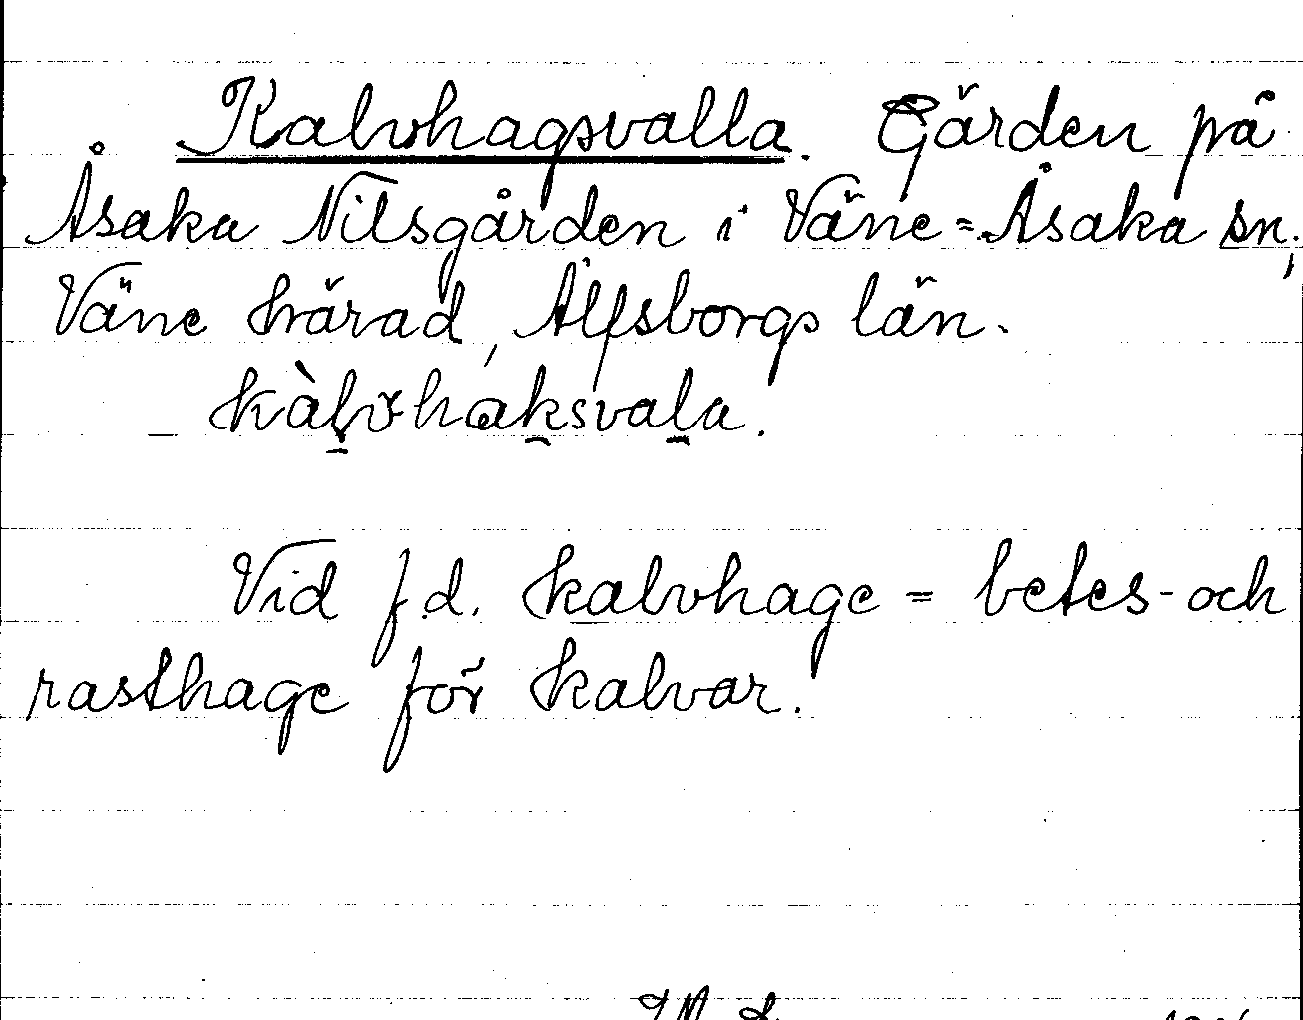 Kalvhagsvalla. Gärden på
Åsaka Nilsgården i Väne=Åsaka sn,
Väne härad, Älfsborgs län.
kàlvhaksvala.
Vid f.d. kalvhage = betes- och
rasthage för kalvar.